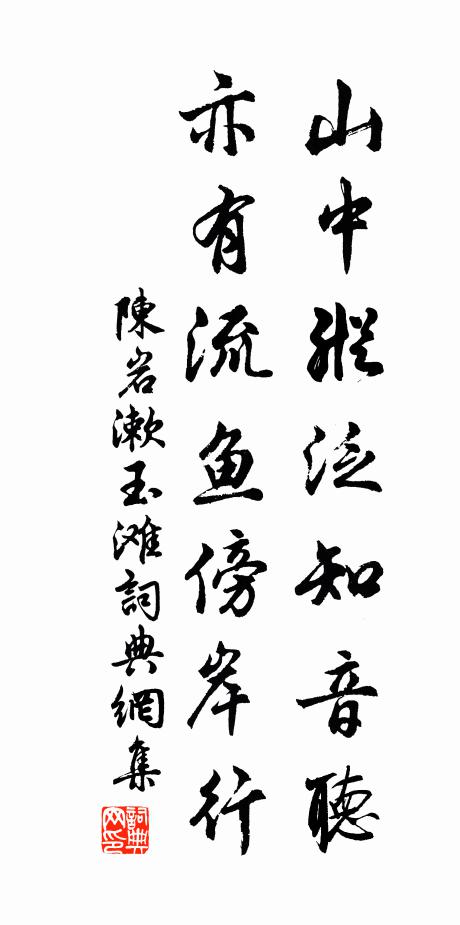 山中縱泛知音聽
亦有流鱼傍岸行
陳岩漱玉滩詞典網集
詞典网印